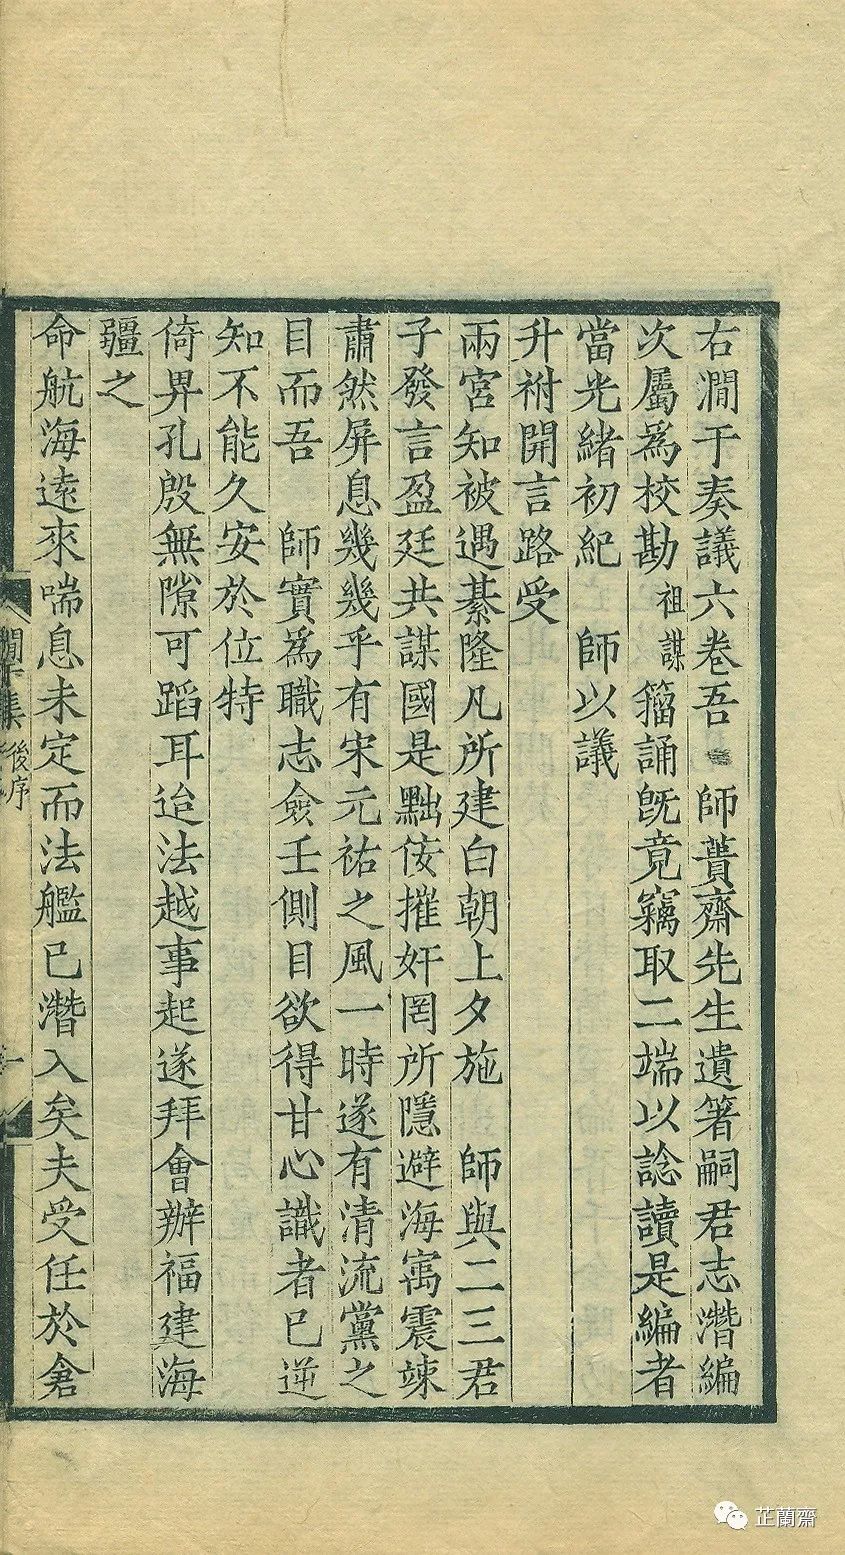 右澗于奏議六卷吾　師蕢齋先生遺箸嗣君志潛編
次屬爲校勘祖謀籀誦旣竟竊取二端以諗讀是編者
當光緒初紀　師以議
升祔開言路受
兩宮知被遇綦隆凡所建白朝上夕施　師與二三君
子發言盈廷共謀國是黜佞摧奸罔所隱避海㝢震竦
肅然屏息幾幾乎有宋元祐之風一時遂有清流黨之
目而吾　師實爲職志僉壬側目欲得甘心識者已逆
知不能久安於位特
倚畀孔殷無隙可蹈耳迨法越事起遂拜會辦福建海
疆之
命航海遠來喘息未定而法艦已潛入矣夫受任於倉
澗于集 後序
一
芷蘭齋